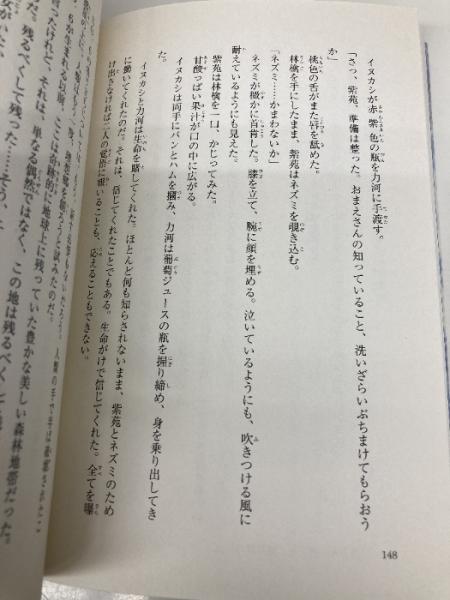 イヌカシが赤紫色の瓶を力河に手渡す。
「さっ、紫苑。準備は整った。おまえさんの知っていること、洗いざらいぶちまけてもらおう
か」
桃色の舌がまた唇を舐めた。
林檎を手にしたまま、紫苑はネズミを覗き込む。
「ネズミ……かまわないか」
ネズミが微かに首肯した。膝を立て、腕に顔を埋める。泣いているようにも、吹きつける風に
耐えているようにも見えた。
紫苑は林檎を一口、かじってみた。
甘酸っぱい果汁が口の中に広がる。
イヌカシは両手にパンとハムを摑み、力河は葡萄ジュースの瓶を握り締め、身を乗り出してき
た。
イヌカシと力河は生命を賭してくれた。ほとんど何も知らされないまま、紫苑とネズミのため
に動いてくれたのだ。それは、信じてくれたことでもある。生命がけで信じてくれた。全てを曝
け出さなければ二人の覚悟に報いることも、応えることもできない。
148
理想郷を創ろうと試みたのだ。
奇跡的に地球上に残っていた豊かな美しい森林地帯だった。
たけれど、それは、単なる偶然ではなく、この地は残るべくして
残るべくして残った……そう、